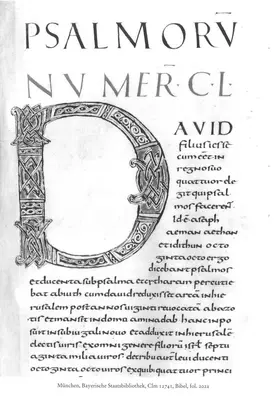 PSALMORV
NVMER·CL
DAVID
filius iesse
cum eet in
regno suo
quattuor de
git qui psal
mos facerent
id e asaph
aeman aethan
et idithun octo
ginta octo ergo
dicebant psalmos
et ducenta subpsalma et cytharam percutie
bat abiuth cum david reduxisset arca in hie
rusalem post annos uiginti reuocata ab azo
tis et mansit in domo aminadab hanc inpo
suit in subiugali nouo et adduxit in hierusale
lectis uiris ex omni genere filioru isrl septu
aginta milia uiros de tribu aut leui ducenti
octoginta octo uiros ex quib
München, Bayerische Staatsbibliothek, Clm 12741, Bibel, fol. 202r